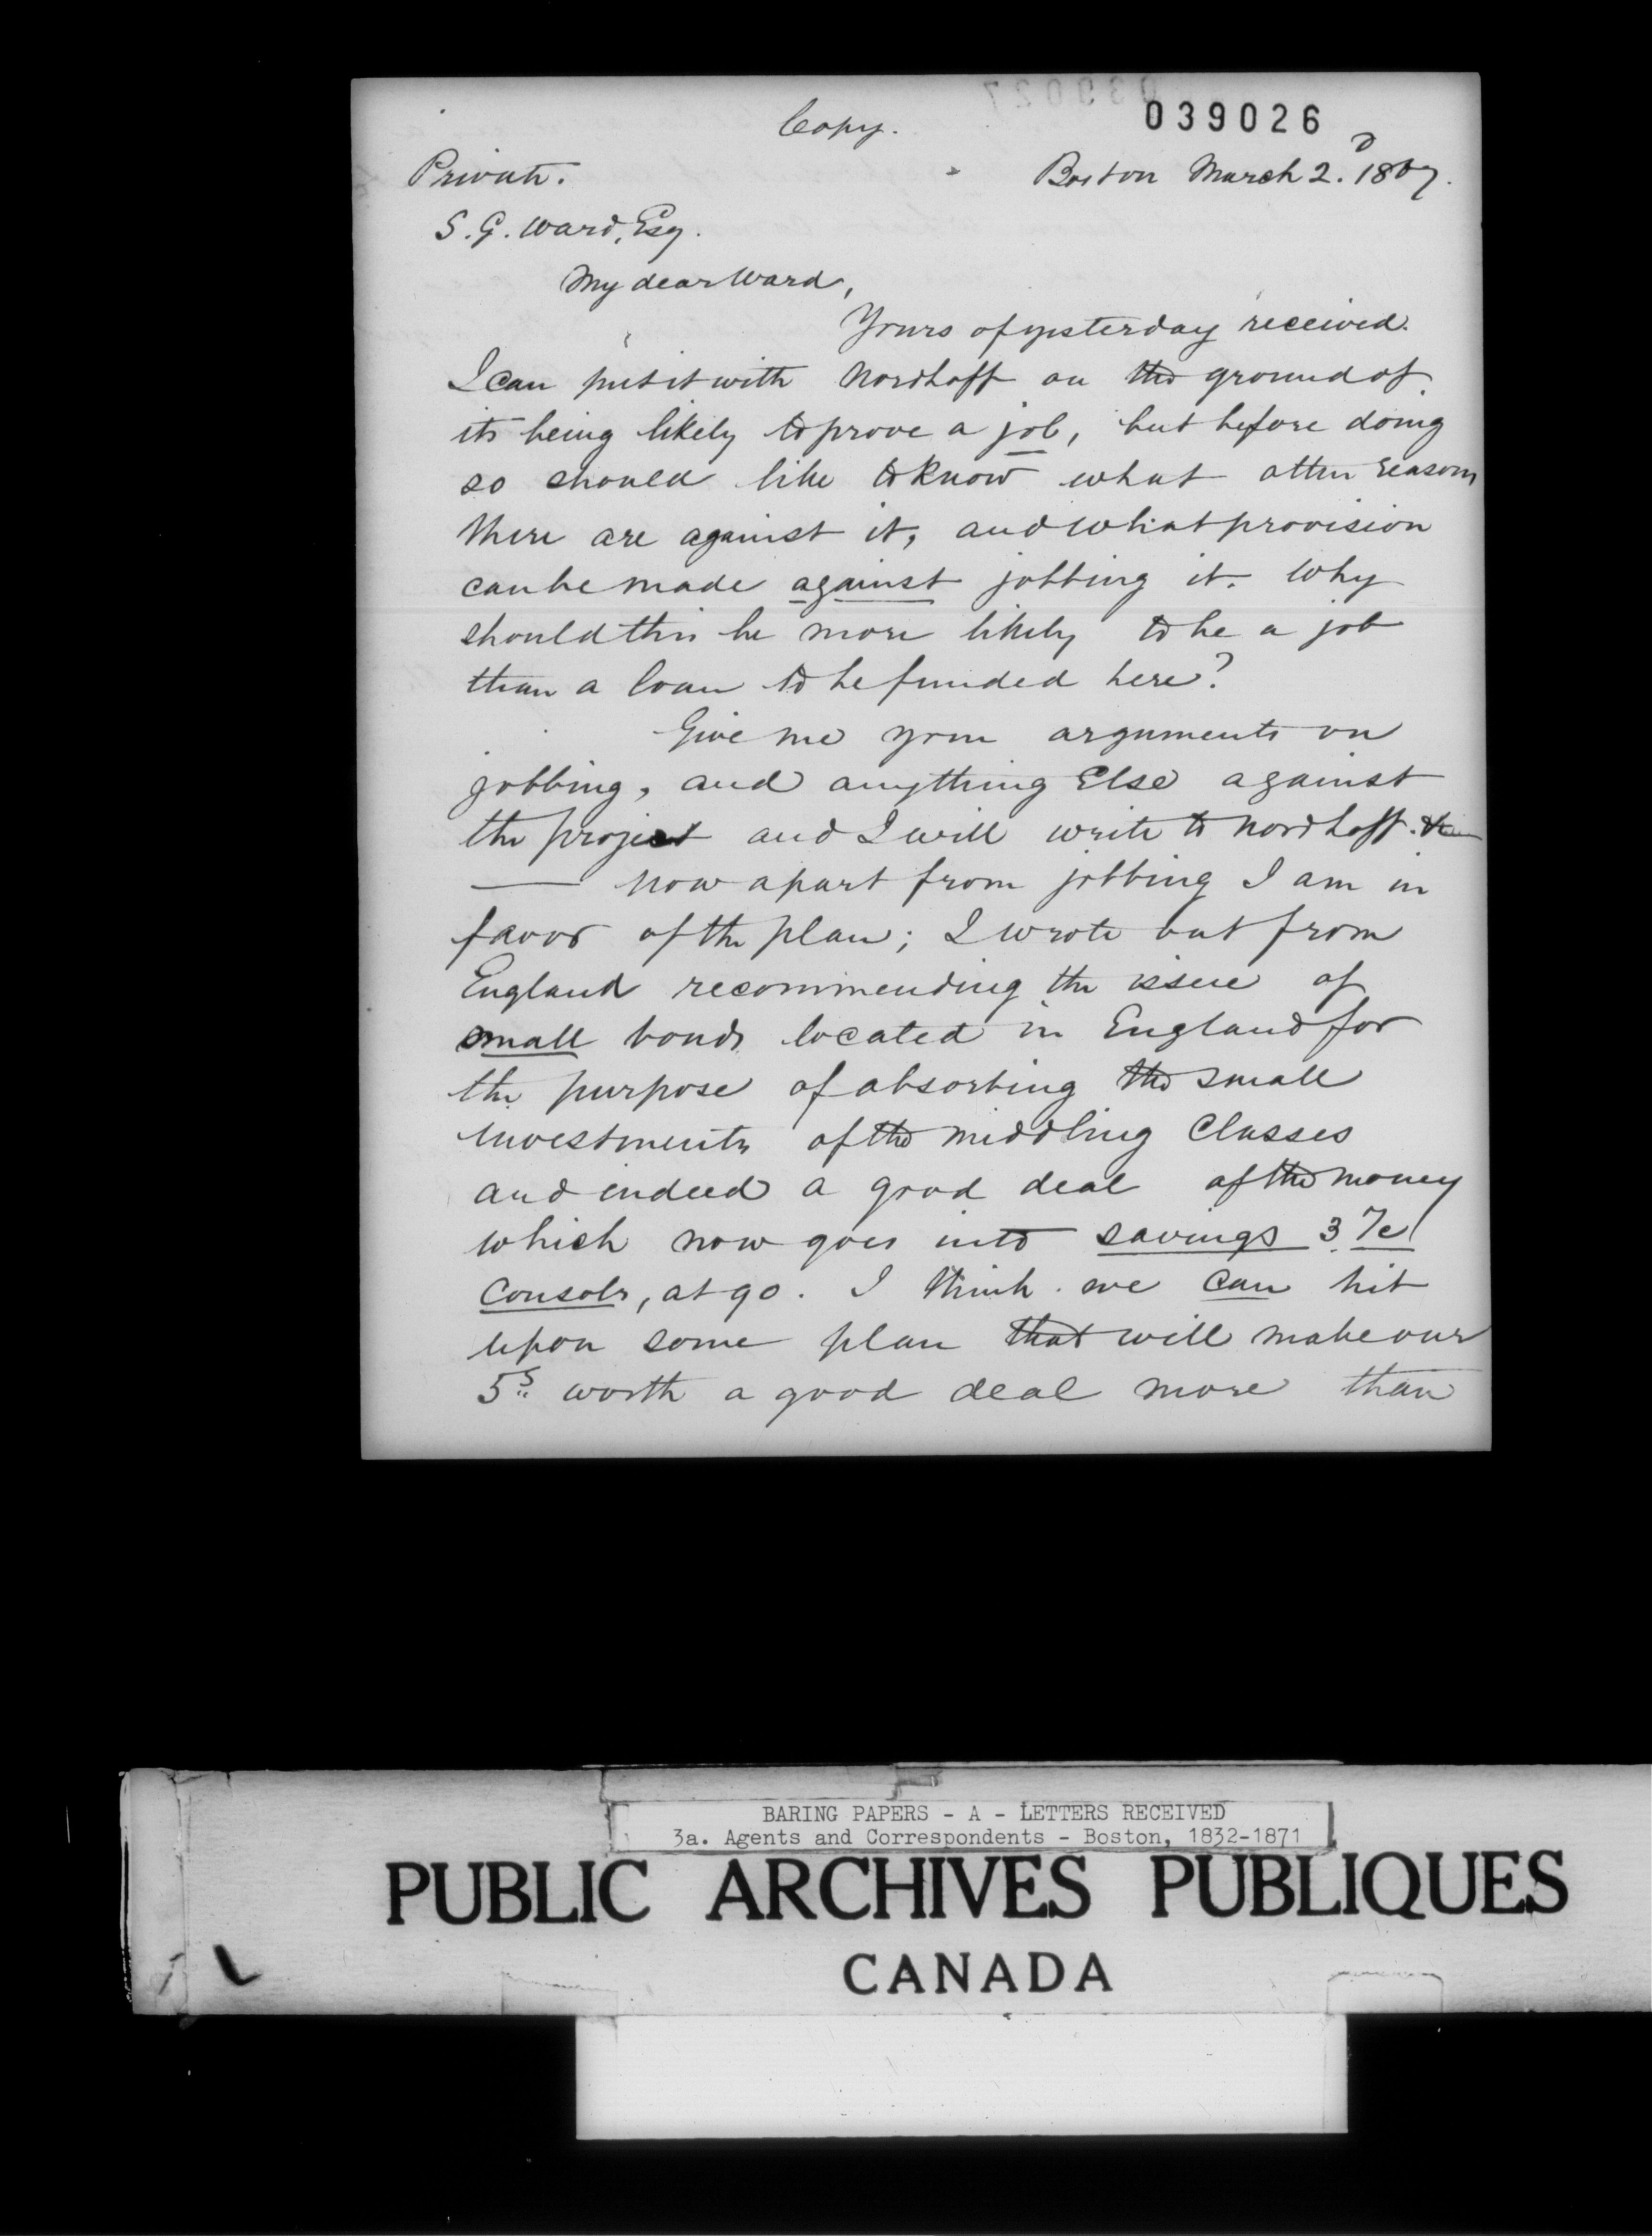 Copy.
039026
Private.
Boston March 2.d 1867.
S. G. Ward, Esq.
My dear Ward,
Yours of yesterday received.
I can put it with Nordhoff on the ground of
its being likely to prove a job, but before doing
so should like to know what other reasons
there are against it, and what provision
can be made against jobbing it. Why
should this be more likely to be a job
than a loan to be funded here?
Give me your arguments on
jobbing, and anything Else against
the project and I will write to Nordhoff.
— Now apart from jobbing I am in
favor of the plan; I wrote out from
England recommending the issue of
small bonds located in England for
the purpose of absorbing the small
investments of the middling Classes
and indeed a good deal of the money
which now goes into savings 3 %
Consols, at 90. I think we can hit
upon some plan that will make our
5s worth a good deal more than
BARING PAPERS - A - LETTERS RECEIVED
3a. Agents and Correspondents - Boston, 1832-1871
PUBLIC ARCHIVES PUBLIQUES
CANADA